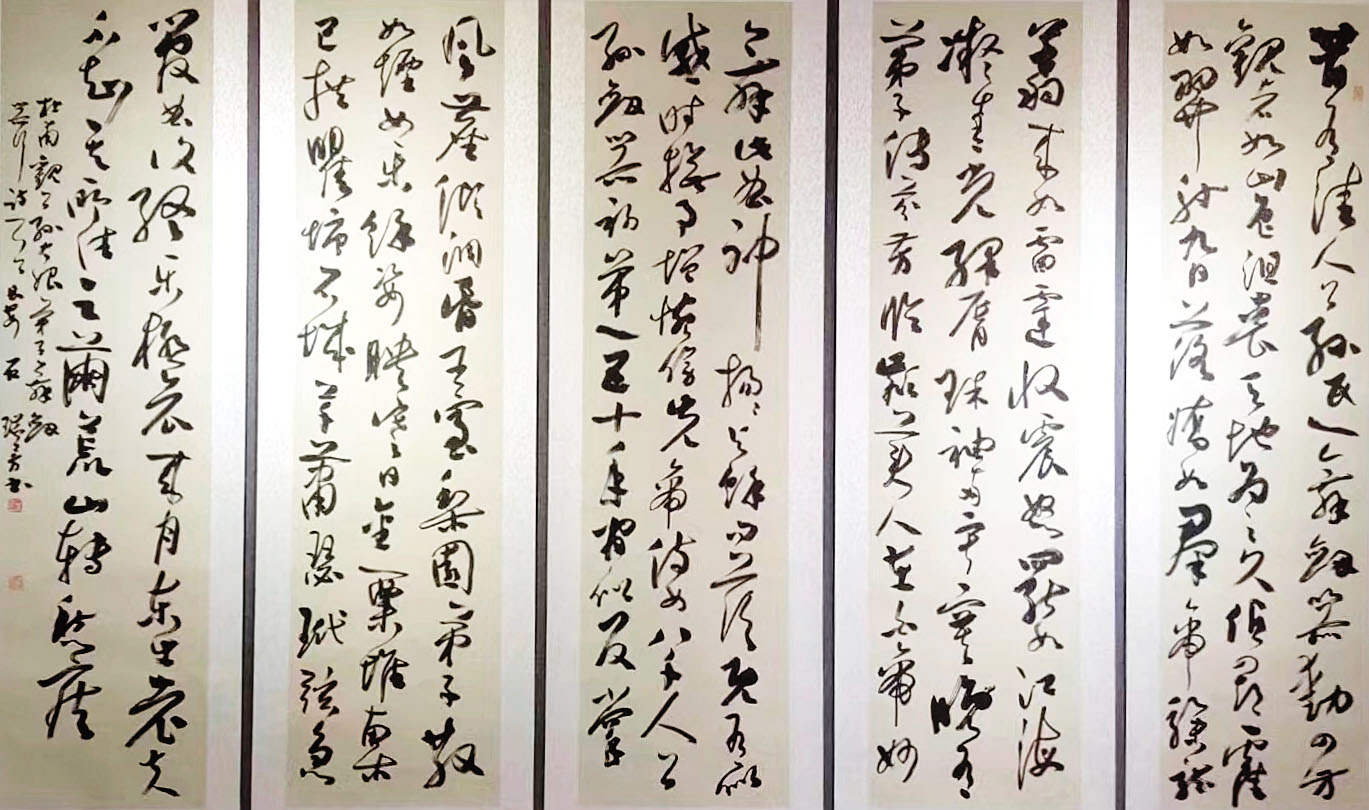 昔有佳人公孫氏一舞劍器動四方
觀者如山色沮喪天地為之久低昂㸌
如羿射九日落矯如群帝驂龍
翔來如雷霆收震怒罷如江海
凝青光絳脣珠袖兩寂寞晚有
弟子傳芬芳臨潁美人在白帝妙
舞此曲神揚揚與余問答既有以
感時撫事增惋傷先帝侍女八千人公
孫劍器初第一五十年間似反掌
風塵澒洞昏王室梨園弟子散
如煙女樂餘姿映寒日金粟堆南木
已拱瞿塘石城草蕭瑟玳弦急
管曲復終樂極哀來月東出老夫
不知其所往足繭荒山轉愁疾
杜甫觀公孫大娘弟子舞劍
器行詩一首 石瑞芳書